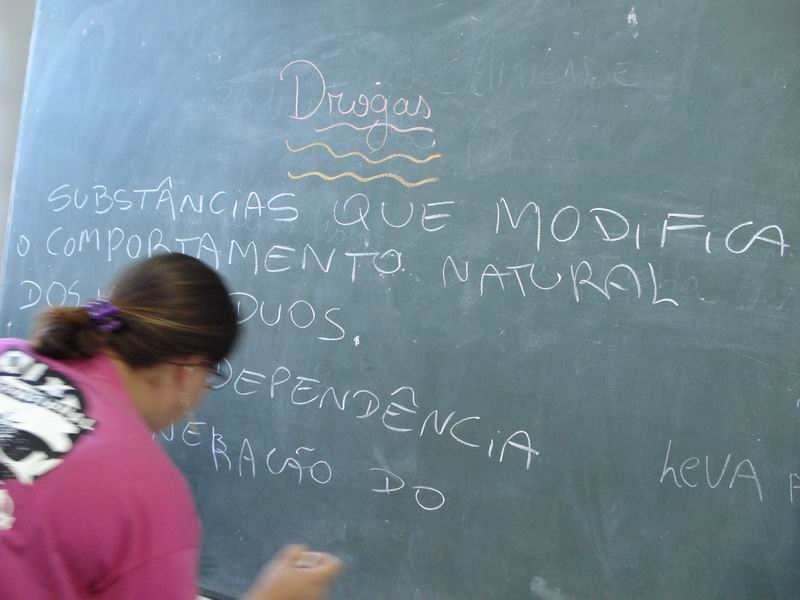 Drogas
SUBSTÂNCIAS QUE MODIFICA
O COMPORTAMENTO NATURAL
DOS
DEPENDÊNCIA
DO
LEVA